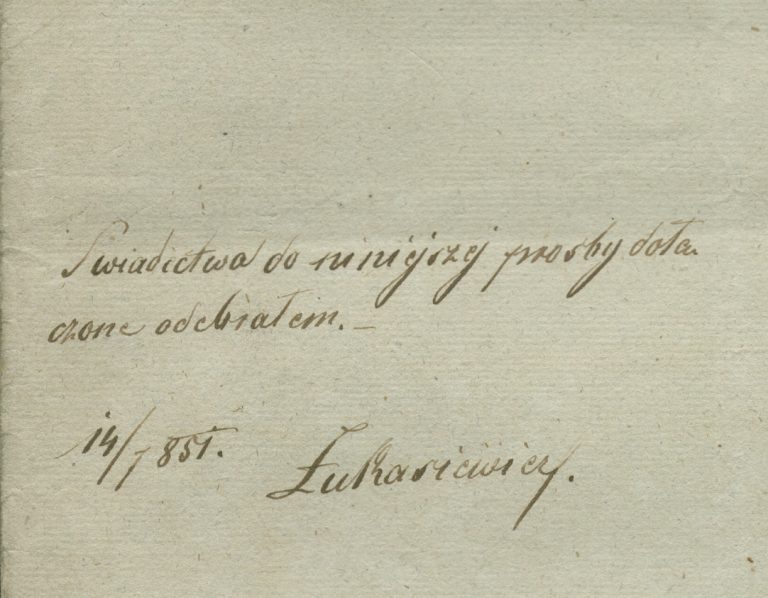 Swiadictwa do niniejszej prosby dołą-
czone odebrałem. –
14/7 851.
Łukasiewicz.